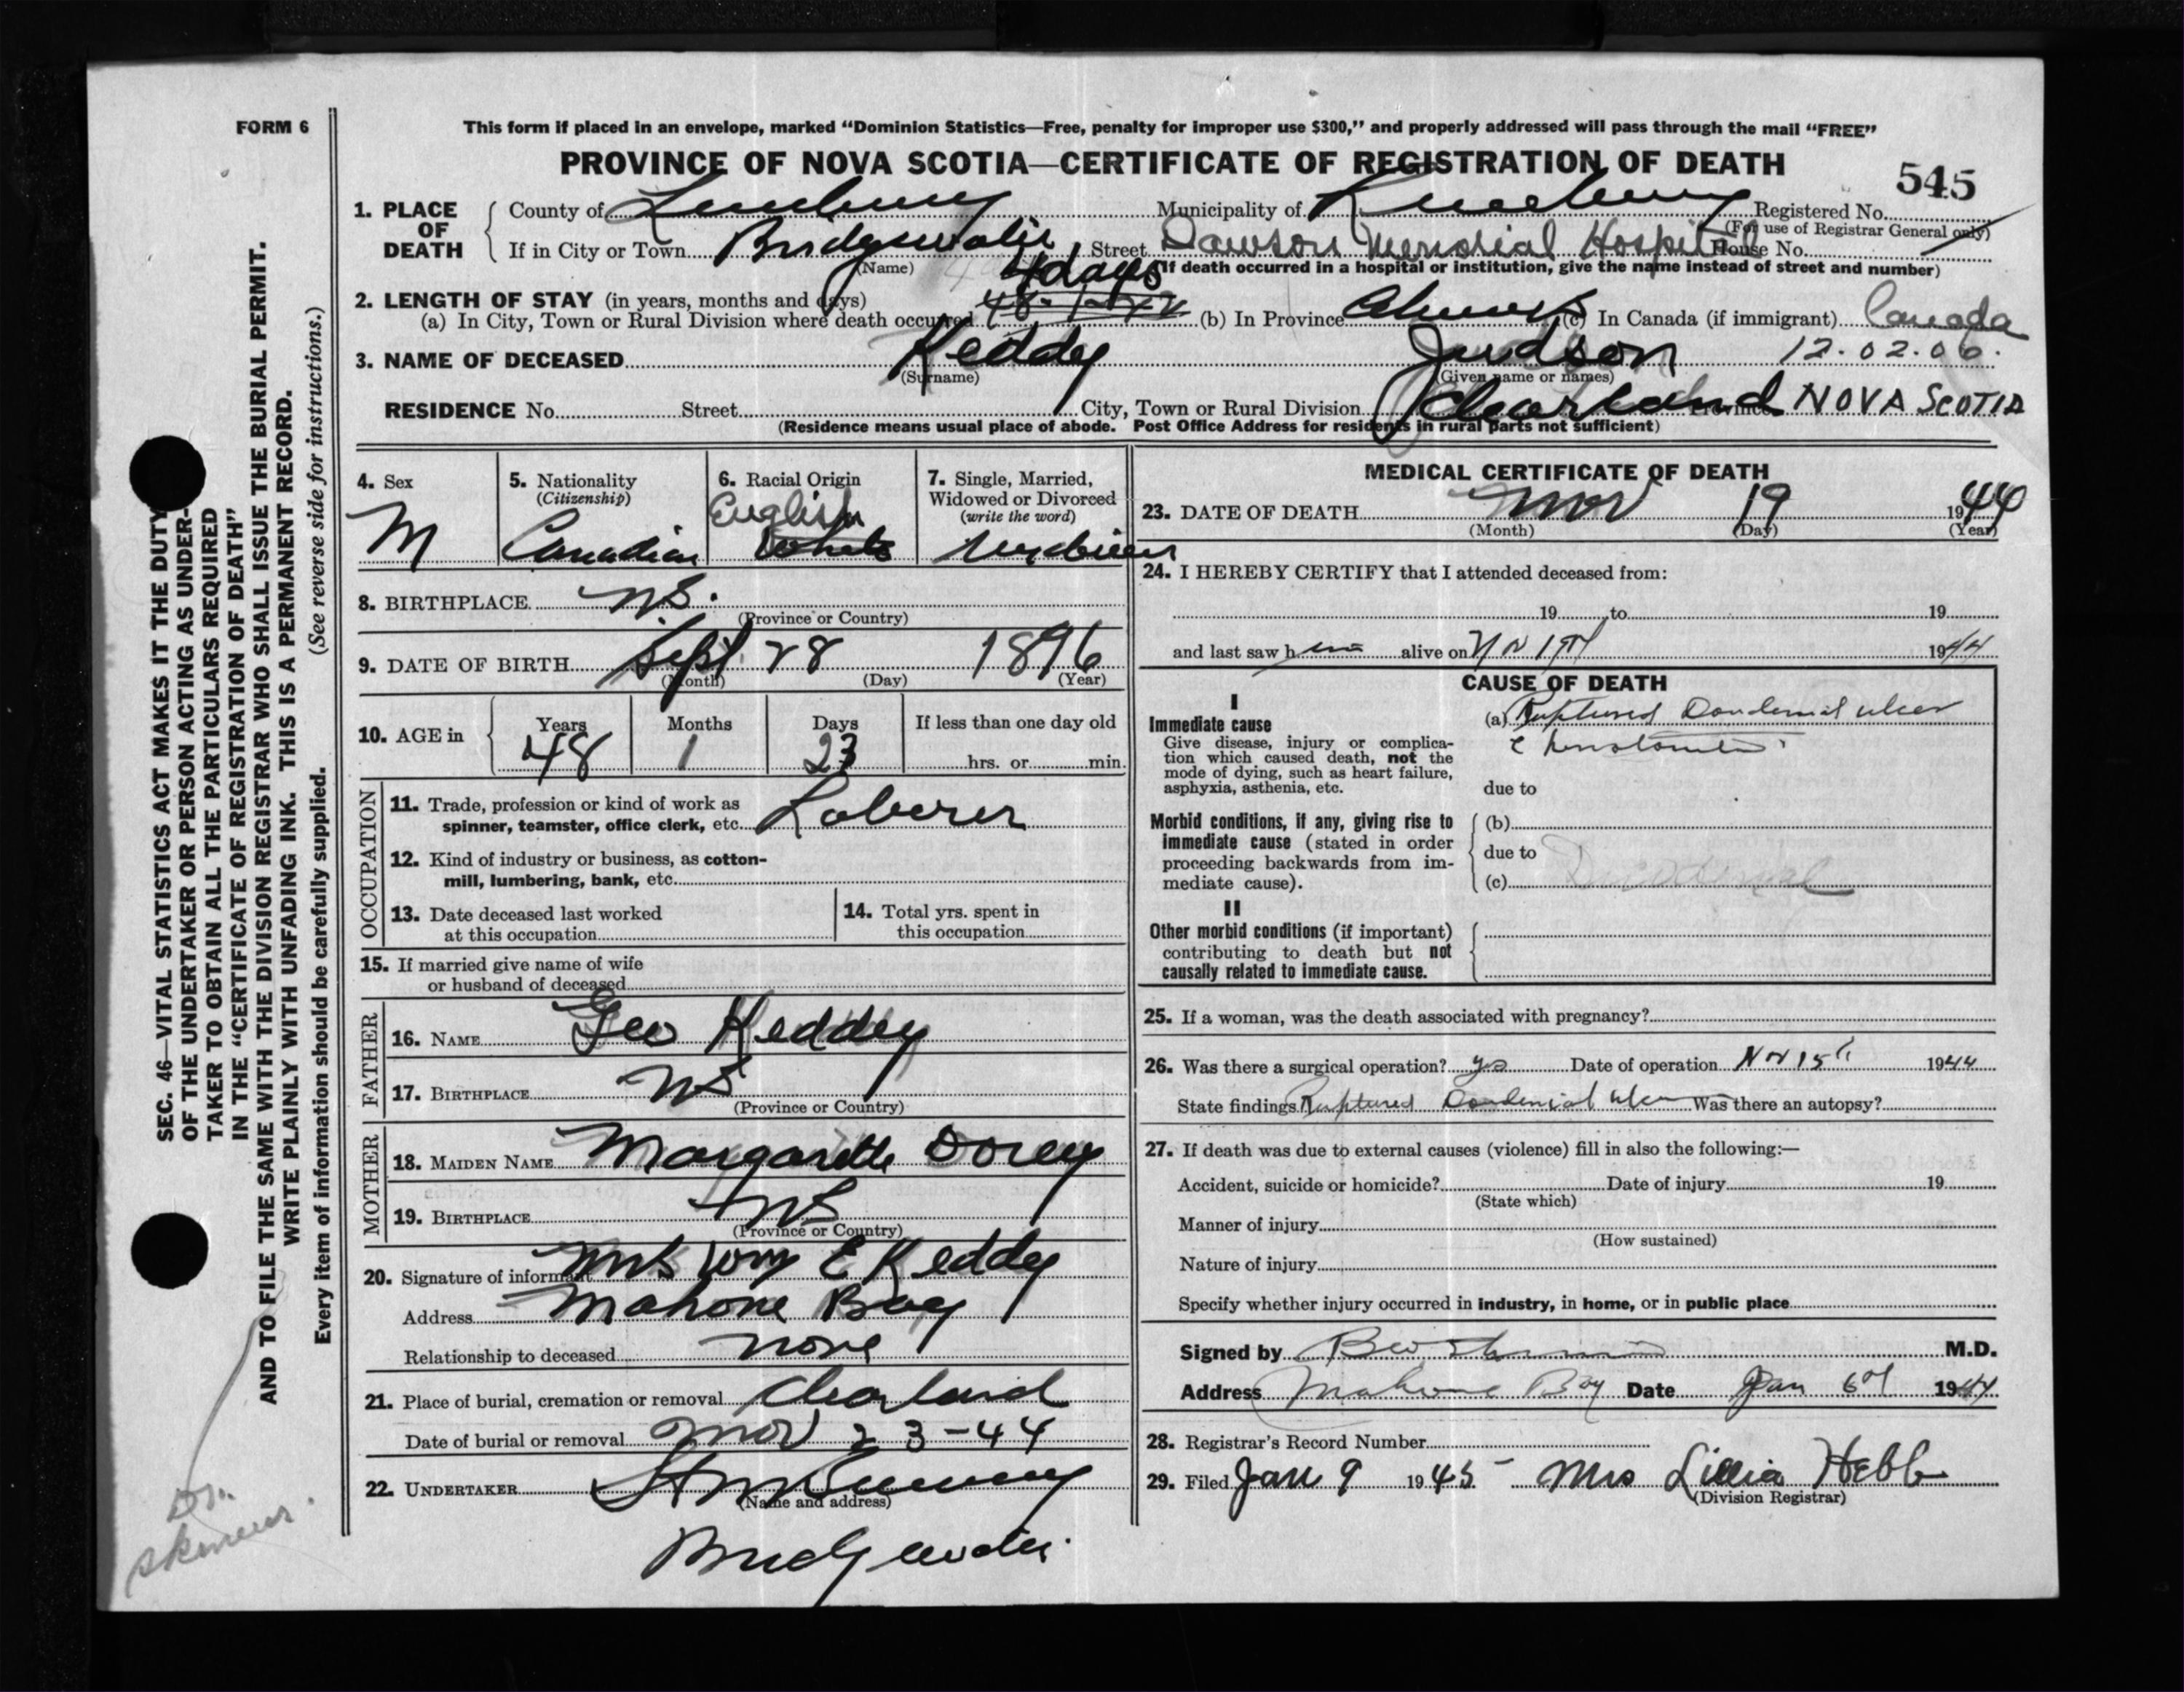 FORM 6
This form if placed in an envelope, marked "Dominion Statistics—Free, penalty for improper use $300," and properly addressed will pass through the mail "FREE"
PROVINCE OF NOVA SCOTIA—CERTIFICATE OF REGISTRATION OF DEATH
545
1. PLACE OF DEATH { County of Lunenburg Municipality of Lunenburg Registered No.
(For use of Registrar General only)
If in City or Town Bridgewater Street Dawson Memorial Hospital House No.
(Name) (If death occurred in a hospital or institution, give the name instead of street and number)
4 days
2. LENGTH OF STAY (in years, months and days)
(a) In City, Town or Rural Division where death occurred (b) In Province Always (c) In Canada (if immigrant) Canada
3. NAME OF DECEASED Keddy Judson 12.02.06.
(Surname) (Given name or names)
RESIDENCE No. Street City, Town or Rural Division Clearland Province NOVA SCOTIA
(Residence means usual place of abode. Post Office Address for residents in rural parts not sufficient)
4. Sex
M
5. Nationality
(Citizenship)
Canadian
6. Racial Origin
English
White
7. Single, Married,
Widowed or Divorced
(write the word)
8. BIRTHPLACE NS.
(Province or Country)
9. DATE OF BIRTH Sept 28 1896
(Month) (Day) (Year)
10. AGE in { Years Months Days If less than one day old
48 1 23 hrs. or min.
OCCUPATION
11. Trade, profession or kind of work as
spinner, teamster, office clerk, etc. Laberer
12. Kind of industry or business, as cotton-
mill, lumbering, bank, etc.
13. Date deceased last worked
at this occupation
14. Total yrs. spent in
this occupation
15. If married give name of wife
or husband of deceased
FATHER
16. NAME Geo Keddey
17. BIRTHPLACE NS
(Province or Country)
MOTHER
18. MAIDEN NAME Margarette Dorey
19. BIRTHPLACE NS
(Province or Country)
20. Signature of informant Mrs Wm E Keddy
Address Mahone Bay
Relationship to deceased none
21. Place of burial, cremation or removal Clearland
Date of burial or removal Nov 23-44
22. UNDERTAKER
(Name and address)
Bridgewater
MEDICAL CERTIFICATE OF DEATH
23. DATE OF DEATH Nov 19 1944
(Month) (Day) (Year)
24. I HEREBY CERTIFY that I attended deceased from:
19 to 19
and last saw him alive on Nov 19th 1944
CAUSE OF DEATH
I
Immediate cause
Give disease, injury or complica-
tion which caused death, not the
mode of dying, such as heart failure,
asphyxia, asthenia, etc.
(a) Ruptured Doudenial ulcer
due to
Morbid conditions, if any, giving rise to
immediate cause (stated in order
proceeding backwards from im-
mediate cause).
(b)
due to
(c) Duodenal
II
Other morbid conditions (if important)
contributing to death but not
causally related to immediate cause.
25. If a woman, was the death associated with pregnancy?
26. Was there a surgical operation? yes Date of operation Nov 15th 1944
State findings Ruptured Doudenial ulcer Was there an autopsy?
27. If death was due to external causes (violence) fill in also the following:—
Accident, suicide or homicide? Date of injury 19
(State which)
Manner of injury
(How sustained)
Nature of injury
Specify whether injury occurred in industry, in home, or in public place
Signed by M.D.
Address Mahone Bay Date Jan 6th 1944
28. Registrar's Record Number
29. Filed Jan 9 1945 Mrs Lillia Hebb
(Division Registrar)
SEC. 46—VITAL STATISTICS ACT MAKES IT THE DUTY
OF THE UNDERTAKER OR PERSON ACTING AS UNDER-
TAKER TO OBTAIN ALL THE PARTICULARS REQUIRED
IN THE "CERTIFICATE OF REGISTRATION OF DEATH"
AND TO FILE THE SAME WITH THE DIVISION REGISTRAR WHO SHALL ISSUE THE BURIAL PERMIT.
WRITE PLAINLY WITH UNFADING INK. THIS IS A PERMANENT RECORD.
Every item of information should be carefully supplied. (See reverse side for instructions.)
Dr.